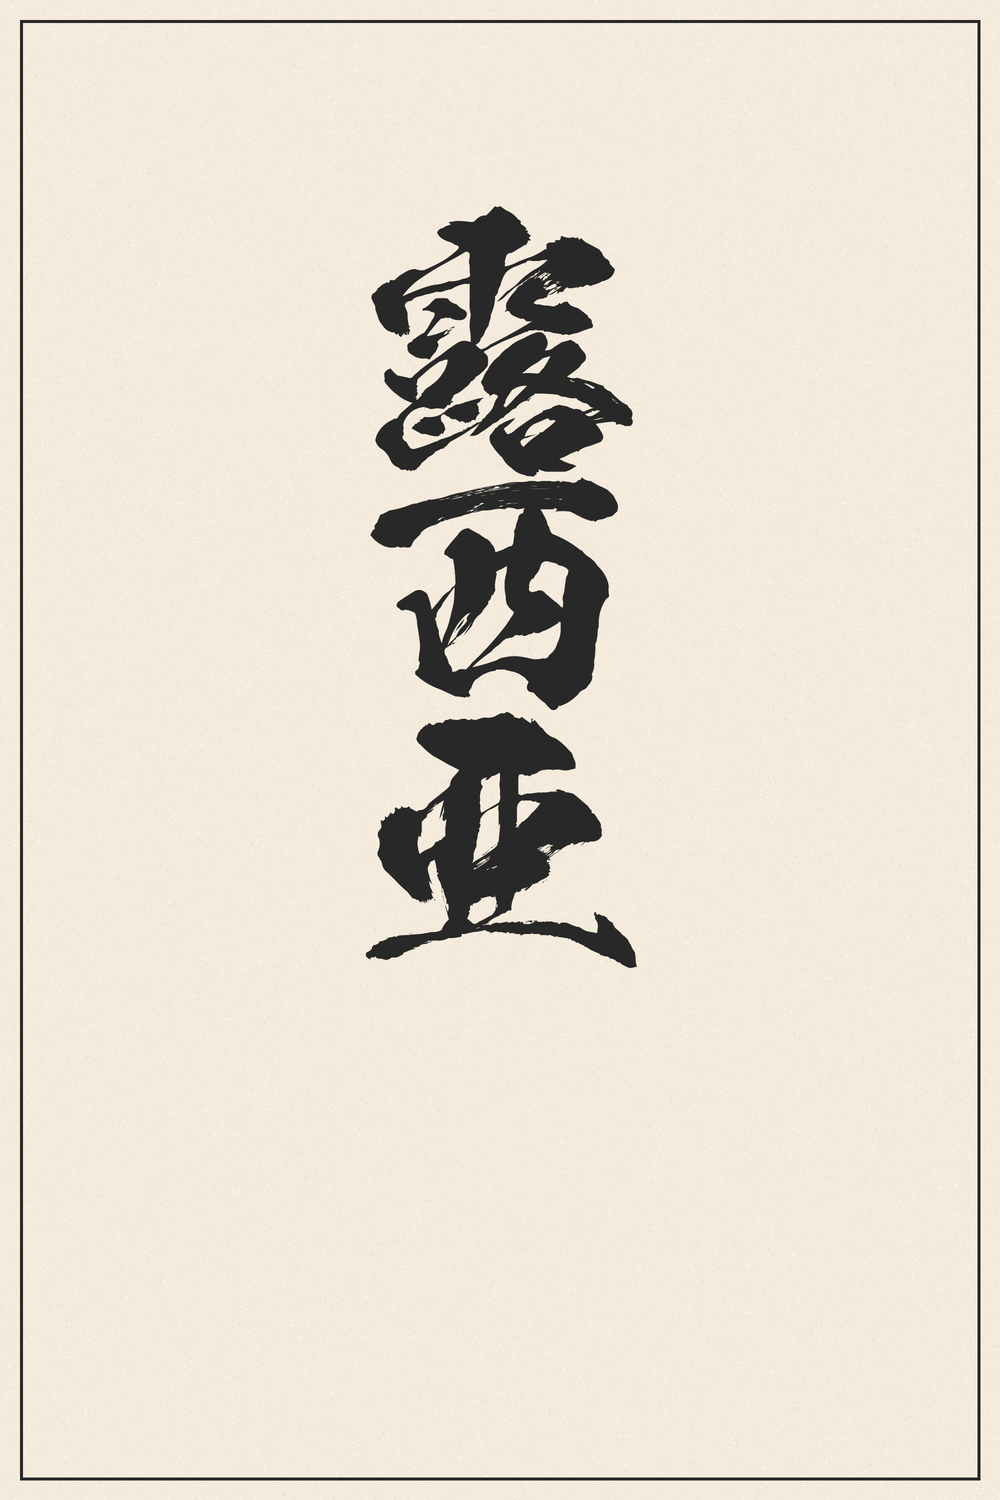 露西亜